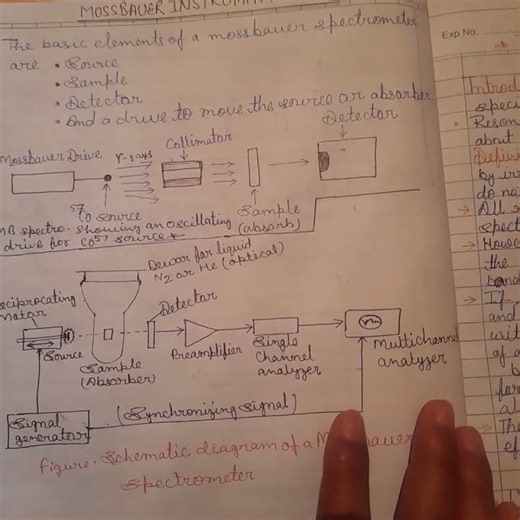 MOSSBAUER INSTRUM
The basic elements of a mossbauer spectrometer
are • Source
• Sample
• Detector
• And a drive to move the source or absorber.
Mossbauer Drive
γ-rays
Collimator
Detector
57
Co source
Sample
(absorb)
MB spectro. showing an oscillating
drive for Co57 source
Dewar for liquid
N2 or He (optical)
Reciprocating
Motor
Source
Sample
(Absorber)
Detector
Preamplifier
Single
Channel
analyzer
Multichannel
analyzer
Signal
generator
(Synchronizing signal)
Figure. Schematic diagram of a Mossbauer
spectrometer
Exp No.
Introd
speci
• Reson
about
Defin
by
do no
→ All
spect
→ Howe
the
→ If
and
of a
b
for
al
→ The
ef